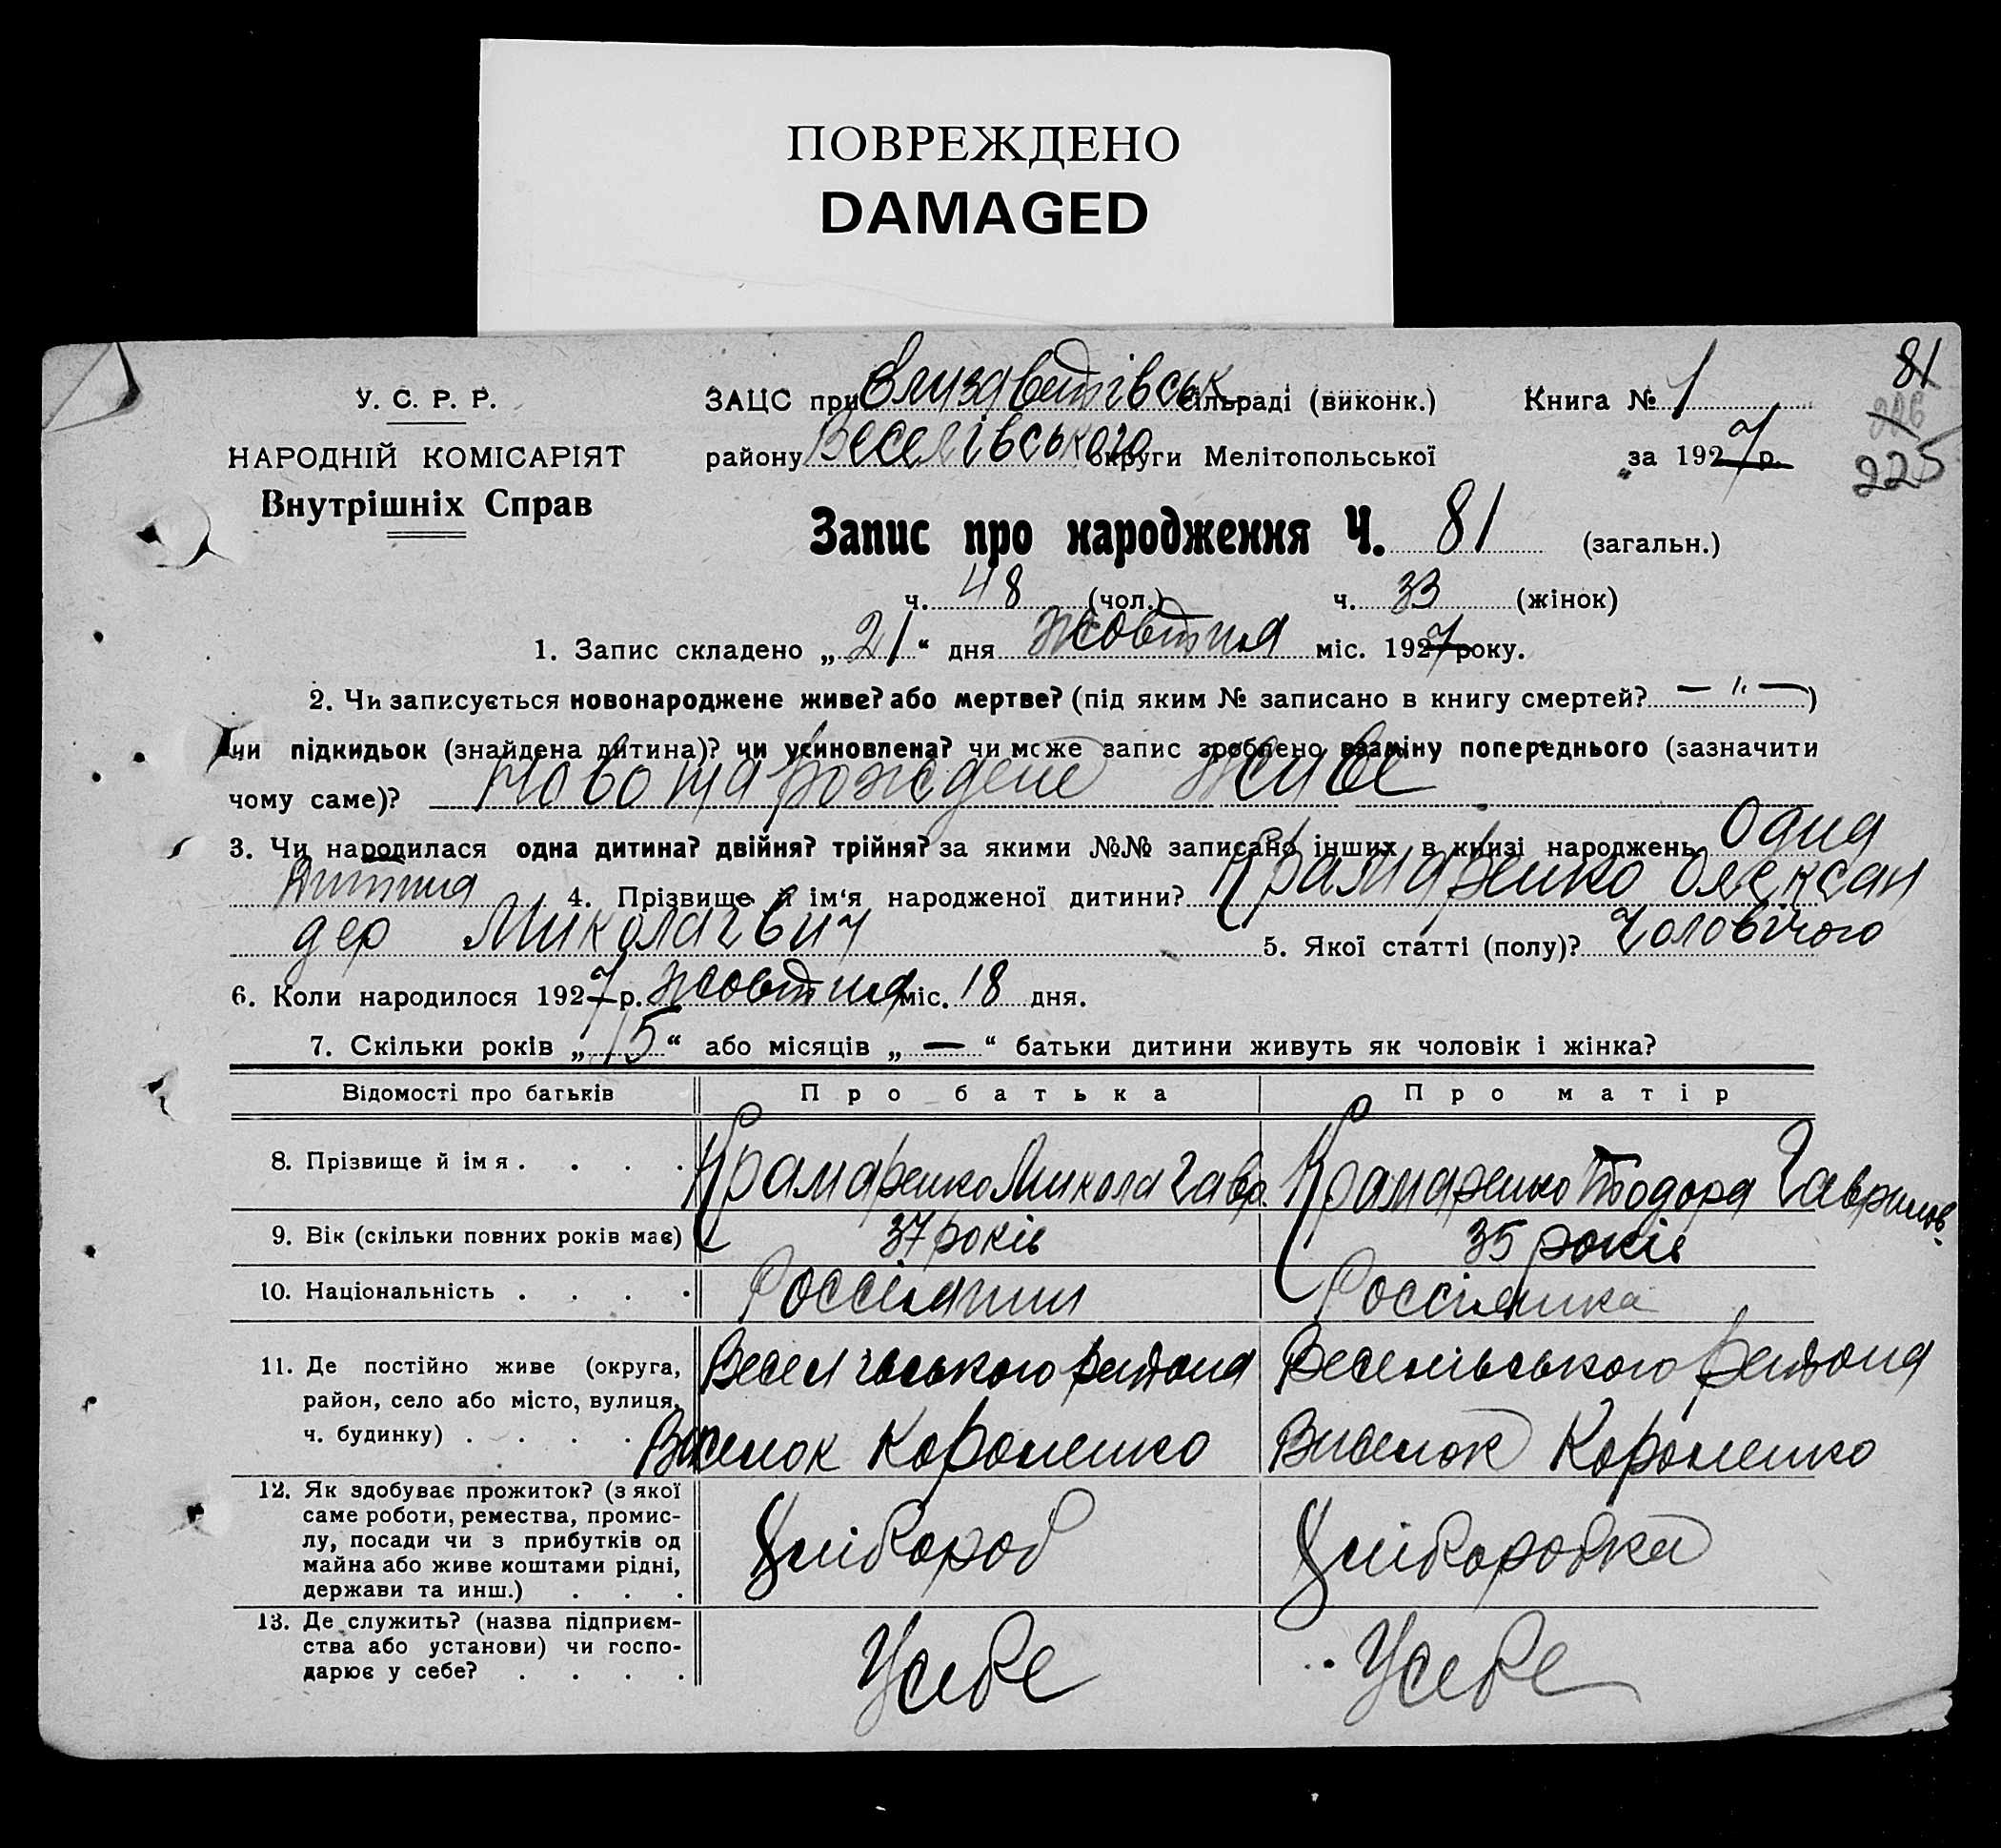 ПОВРЕЖДЕНО
DAMAGED
У. С. Р. Р.
НАРОДНІЙ КОМІСАРІЯТ
Внутрішніх Справ
ЗАЦС при Єлизаветівськ сільраді (виконк.) Книга № 1
району Веселівського округи Мелітопольської за 1927 р.
81
226
225
Запис про народження Ч. 81 (загальн.)
ч. 48 (чол.) ч. 33 (жінок)
1. Запис складено „ 21 “ дня жовтня міс. 1927 року.
2. Чи записується новонароджене живе? або мертве? (під яким № записано в книгу смертей? — „ — )
чи підкидьок (знайдена дитина)? чи усиновлена? чи може запис зроблено взаміну попереднього (зазначити
чому саме)? Новонарождене живе
3. Чи народилася одна дитина? двійня? трійня? за якими №№ записано інших в книзі народжень Одна
дитина 4. Прізвище й ім‘я народженої дитини? Крамаренко Олексан
дер Миколаевич 5. Якої статті (полу)? Чоловічого
6. Коли народилося 1927 р. жовтня міс. 18 дня.
7. Скільки років „ 15 “ або місяців „ — “ батьки дитини живуть як чоловік і жінка?
Відомості про батьків Про батька Про матір
8. Прізвище й імя . . . . Крамаренко Микола Гавр. Крамаренко Тодора Гаврилов.
9. Вік (скільки повних років має) 37 років 35 років
10. Національність . . . . Россіянин Россіянка
11. Де постійно живе (округа, Веселівського района Веселівського района
район, село або місто, вулиця,
ч. будинку) . . . . Виселок Короленко Виселок Короленко
12. Як здобуває прожиток? (з якої
саме роботи, ремества, промис-
лу, посади чи з прибутків од Хлібороб Хліборобка
майна або живе коштами рідні,
держави та инш.) . . .
13. Де служить? (назва підприєм-
ства або установи) чи госпо- У себе У себе
дарює у себе? . . . .